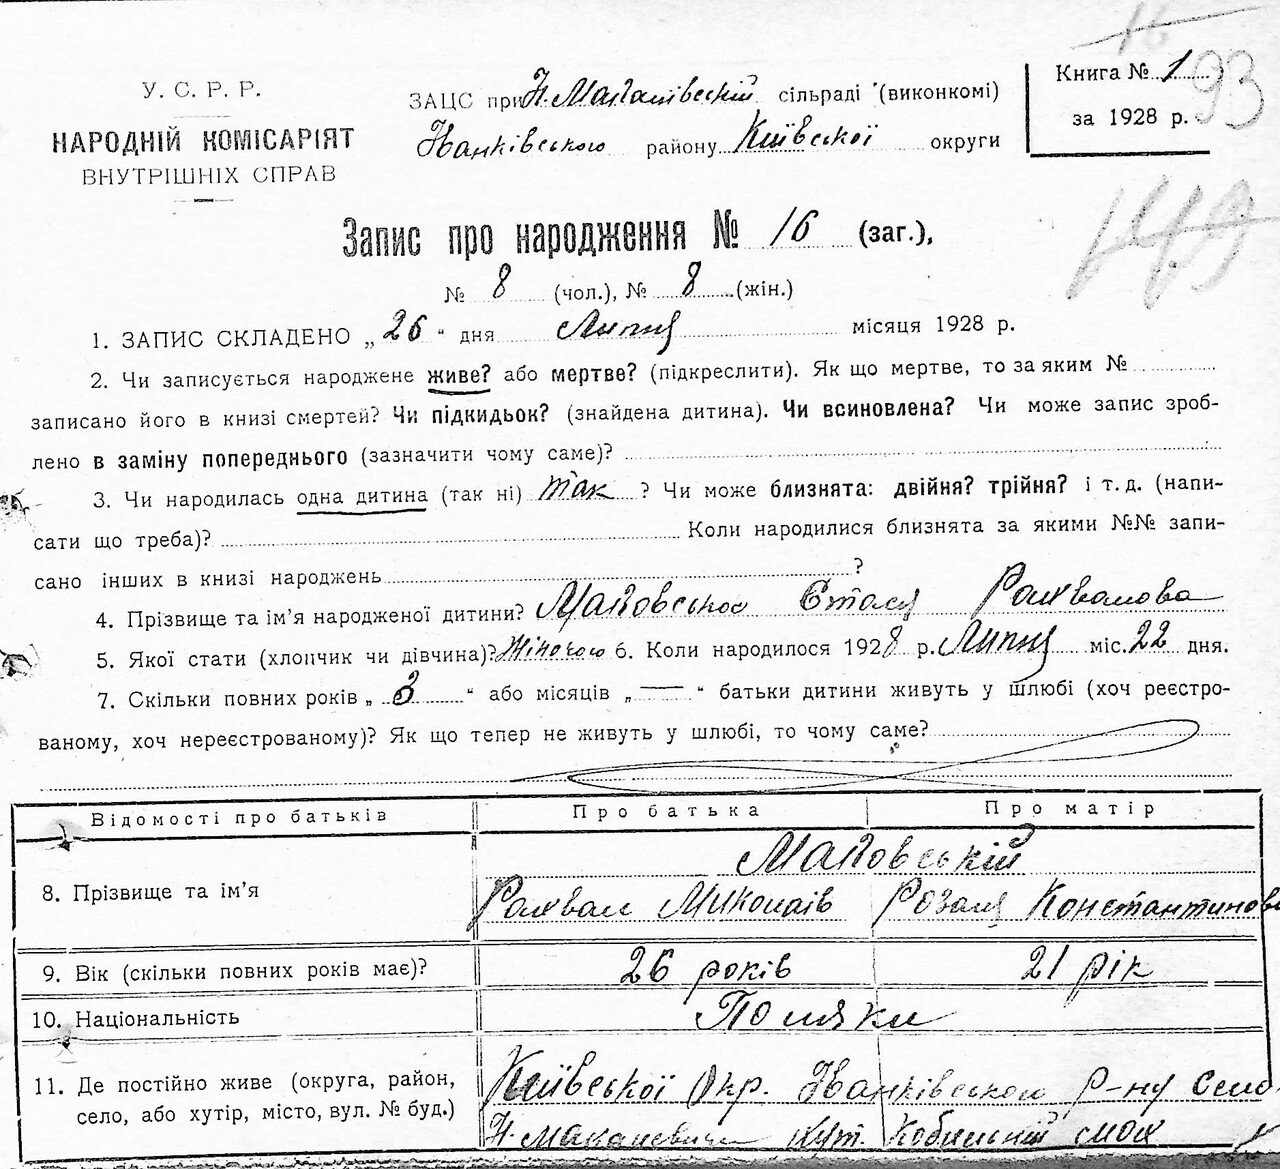 16
У. С. Р. Р.
НАРОДНІЙ КОМІСАРІЯТ
ВНУТРІШНІХ СПРАВ
ЗАЦС при Н. Макалівській сільраді (виконкомі)
Іванківського району Київської округи
Книга № 1
за 1928 р.
93
149
Запис про народження № 16 (заг.),
№ 8 (чол.), № 8 (жін.)
1. ЗАПИС СКЛАДЕНО „ 26 “ дня Липня місяця 1928 р.
2. Чи записується народжене живе? або мертве? (підкреслити). Як що мертве, то за яким №
записано його в книзі смертей? Чи підкидьок? (знайдена дитина). Чи всиновлена? Чи може запис зроб-
лено в заміну попереднього (зазначити чому саме)?
3. Чи народилась одна дитина (так ні) так ? Чи може близнята: двійня? трійня? і т. д. (напи-
сати що треба)? Коли народилися близнята за якими №№ запи-
сано інших в книзі народжень ?
4. Прізвище та ім’я народженої дитини? Стася
5. Якої стати (хлопчик чи дівчина)? Жіночою 6. Коли народилося 1928 р. Липня міс. 22 дня.
7. Скільки повних років „ 3 “ або місяців „ — “ батьки дитини живуть у шлюбі (хоч реєстро-
ваному, хоч нереєстрованому)? Як що тепер не живуть у шлюбі, то чому саме?
Відомості про батьків Про батька Про матір
8. Прізвище та ім’я
Миколаїв Розаля Константинов
9. Вік (скільки повних років має)? 26 років 21 рік
10. Національність Поляки
11. Де постійно живе (округа, район,
село, або хутір, місто, вул. № буд.)
Київської Окр. Іванківського р-ну село
Н. Макалевичи кут.